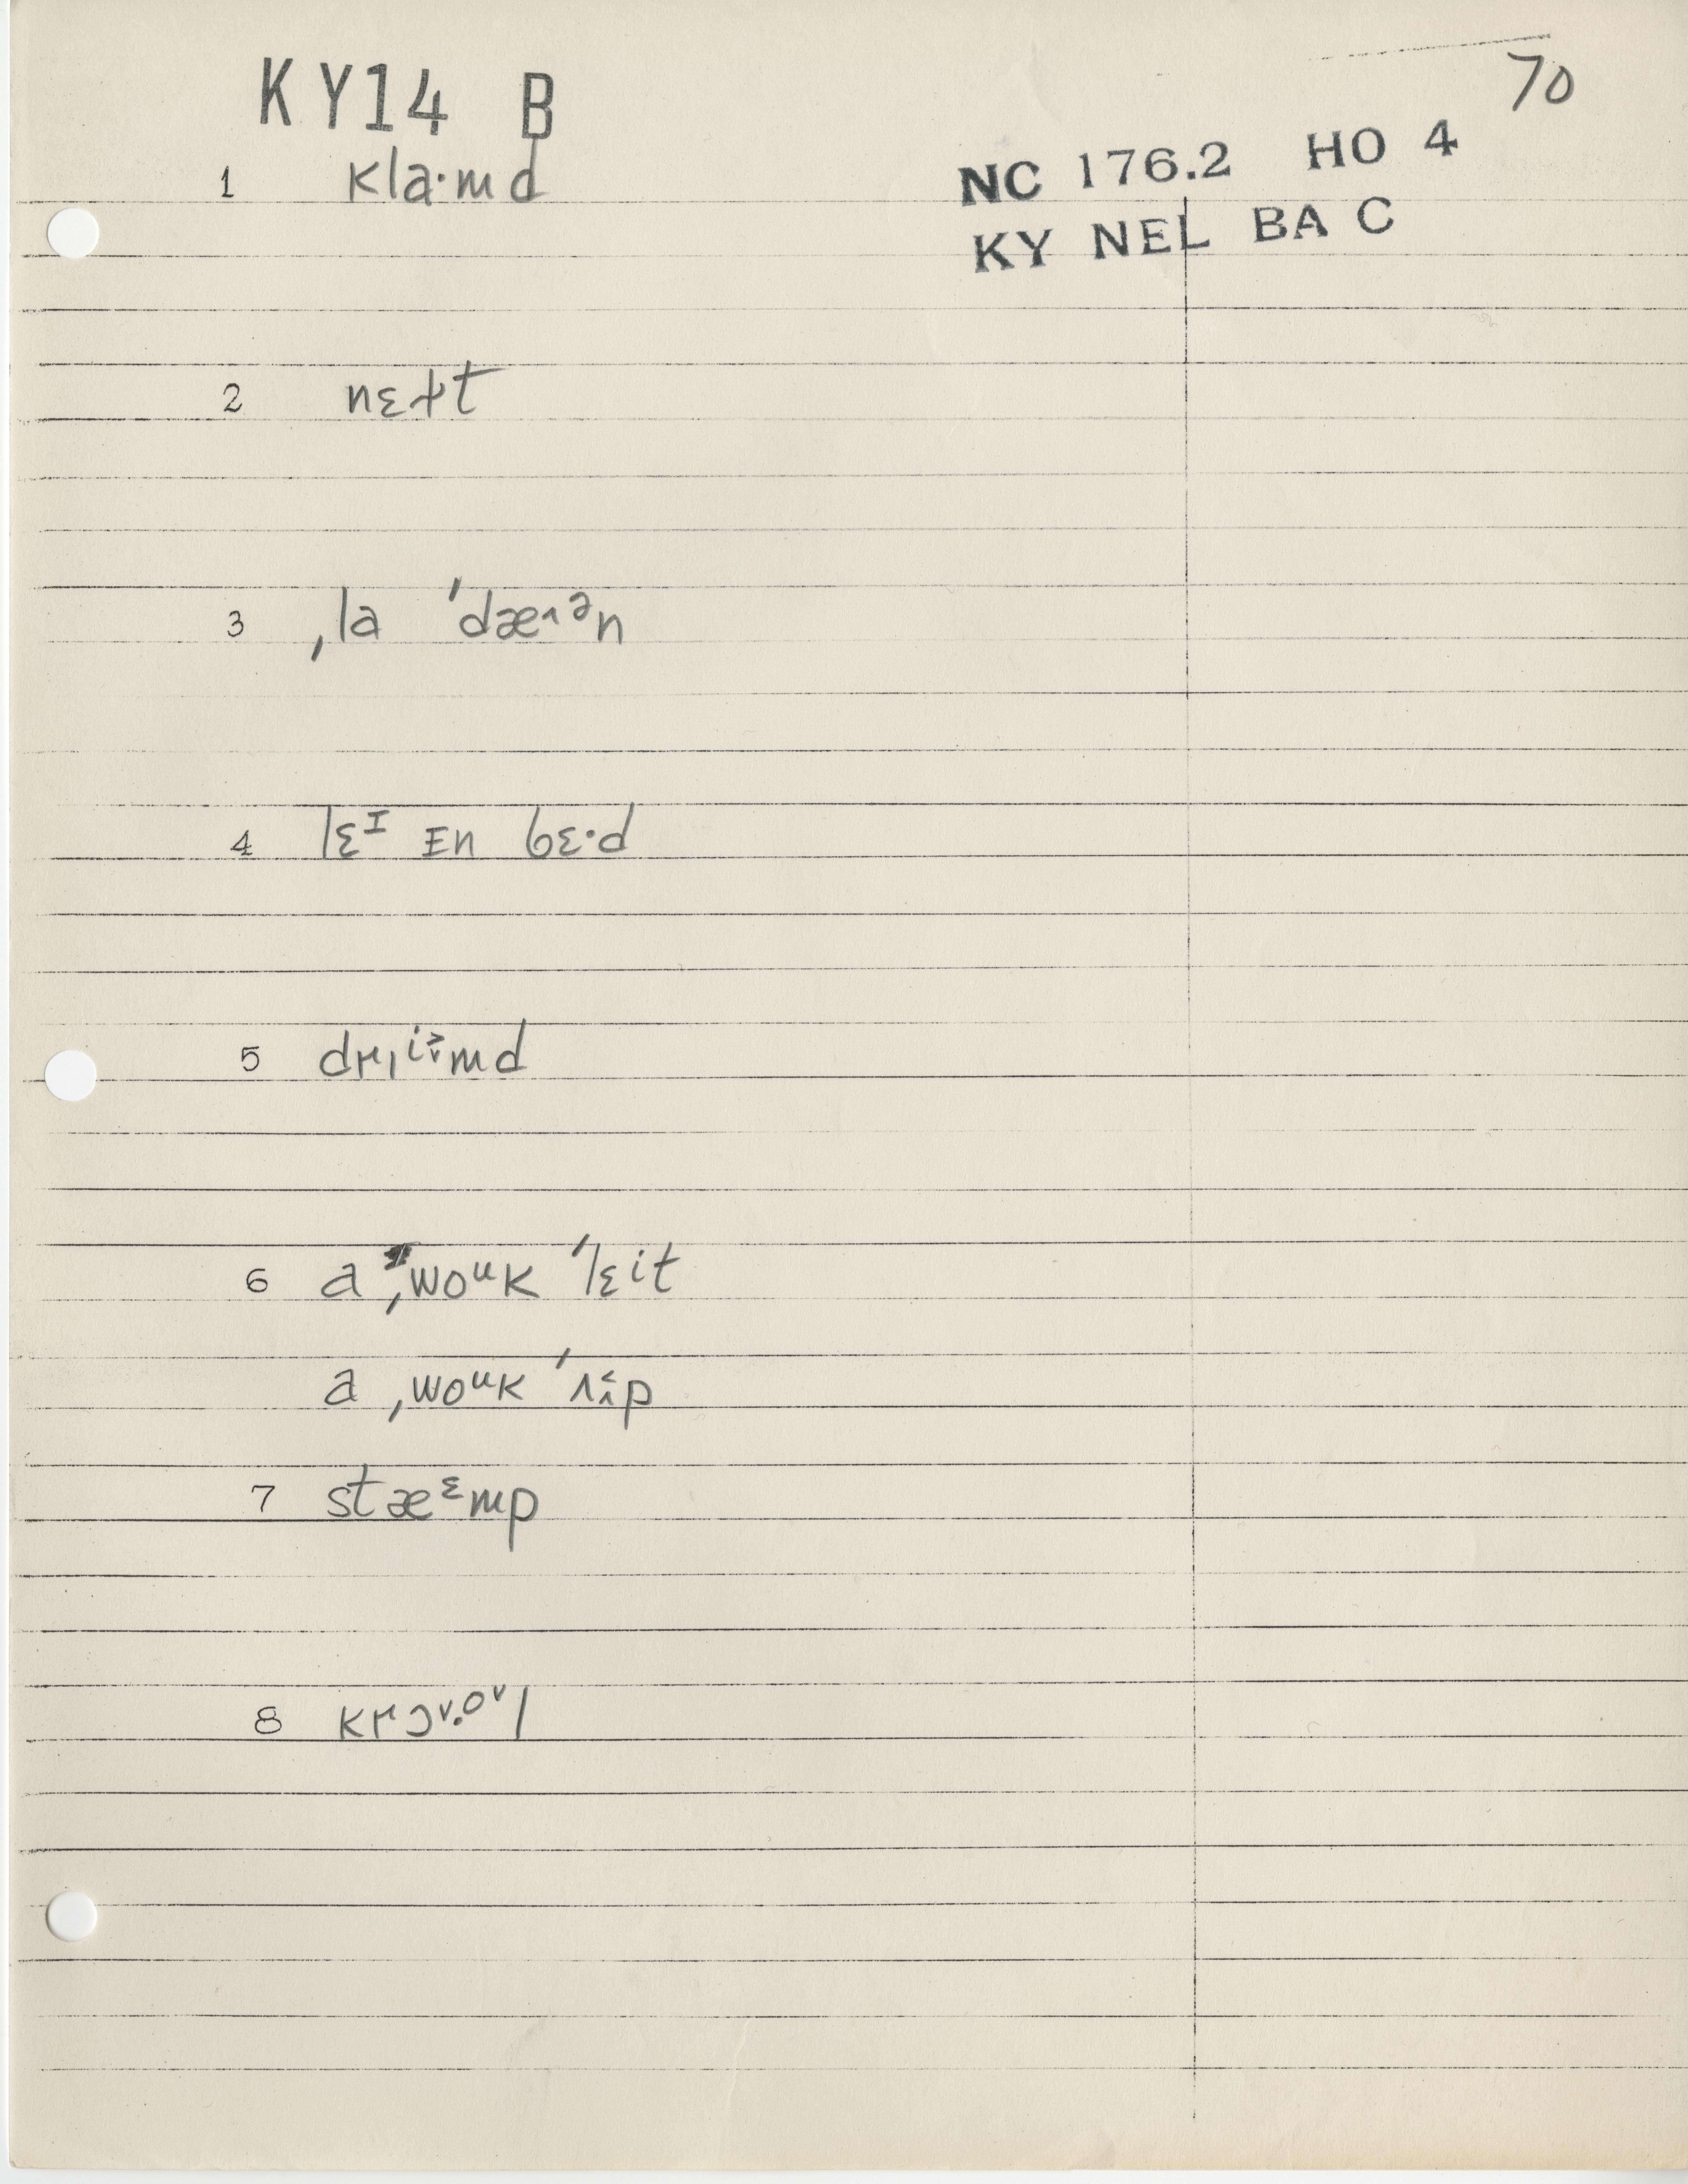 70
KY14 B
NC 176.2 HO 4
KY NEL BA C
1 kla·md
2 nɛɫt
3 ˌla ˈdæ˄ᵊn
4 lɛᴵ ɪn bɛ·d
5
6 a ˌwoᵘk ˈlɛⁱt
a ˌwoᵘk
7 stæᵋmp
8